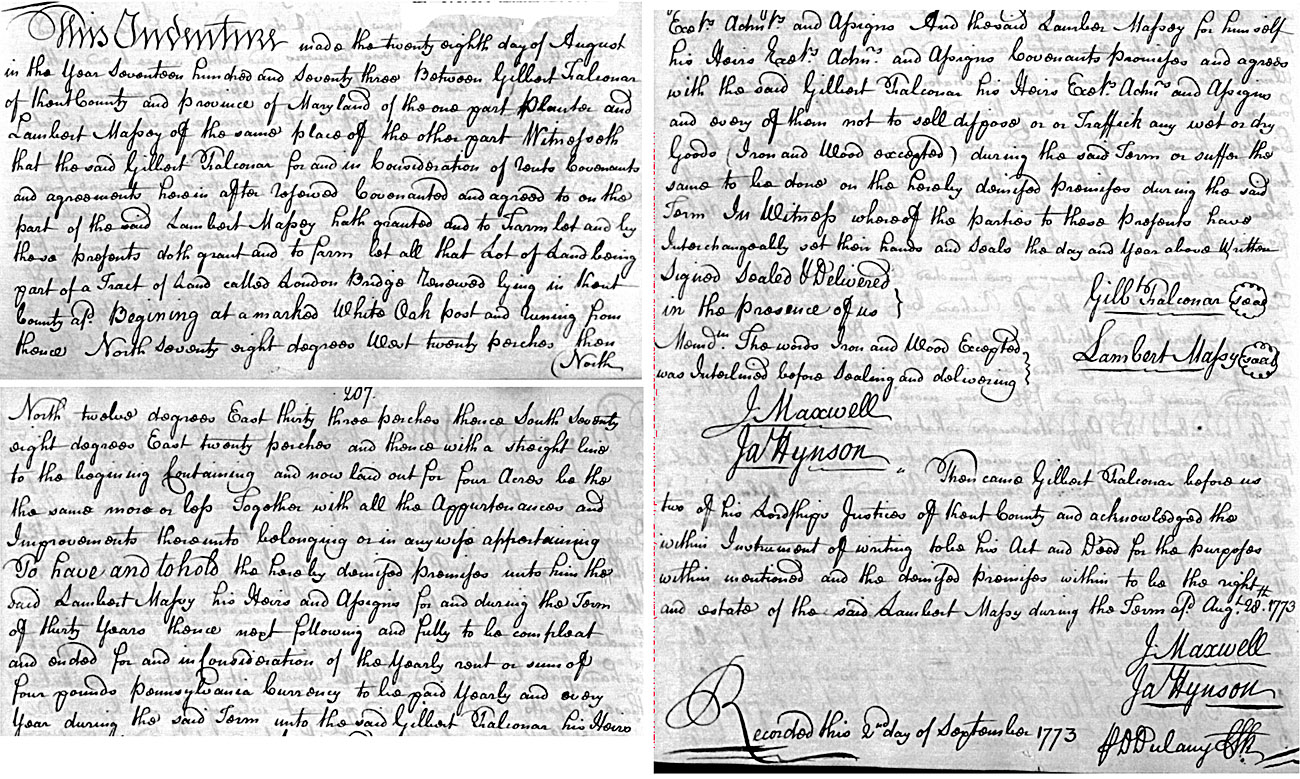 This Indenture made the twenty eighth day of August
in the Year Seventeen hundred and Seventy three Between Gilbert Falconar
of Kent County and province of Maryland of the one part Planter and
Lambert Massey of the same place of the other part Witnesseth
that the said Gilbert Falconar for and in Consideration of Rents Covenants
and agreements herein after reserved Covenanted and agreed to on the
part of the said Lambert Massey hath granted and to Farm let and by
these presents doth grant and to farm let all that Lot of Land being
part of a Tract of Land called London Bridge Renewed lying in Kent
County afd. Begining at a marked White Oak post and runing from
thence North Seventy eight degrees West twenty perches then
(North
207.
North twelve degrees East thirty three perches thence South Seventy
eight degrees East twenty perches and thence with a straight line
to the begining Containing and now laid out for four Acres be the
the same more or less Together with all the Appurtenances and
Improvements thereunto belonging or in any wise appertaining
To have and to hold the hereby demised premises unto him the
said Lambert Massey his Heirs and Assigns for and during the Term
of thirty Years thence next following and fully to be compleat
and ended for and in Consideration of the Yearly rent or sum of
four pounds Pennsylvania Currency to be paid Yearly and every
Year during the said Term unto the said Gilbert Falconar his Heirs
Exets. Admts. and Assigns And the said Lamber Massey for himself
his Heirs Exets. Admn. and Assigns Covenants Promises and agrees
with the said Gilbert Falconar his Heirs Exets. Admns and Assigns
and every of them not to sell dispose or or Traffick any wet or dry
Goods (Iron and Wood excepted) during the said Term or suffer the
same to be done on the hereby demised premises during the said
Term In Witness whereof the parties to these presents have
Interchangeably set their hands and Seals the day and Year above Written
Signed Sealed & Delivered
in the presence of us }
Gilbt. Falconar seal
Memdm. The words Iron and Wood Excepted
was Interlined before Sealing and delivering }
Lambert Massy seal
J Maxwell
Ja Hynson
" Then came Gilbert Falconar before us
two of his Lordships Justices of Kent County and acknowledged the
within Instrument of writing to be his Act and Deed for the purposes
within mentioned and the demised premises within to be the right
and estate of the said Lambert Massey during the Term afd. Augt. 28th. 1773
J Maxwell
Ja Hynson
Recorded this 2nd day of September 1773
Dulany Clk